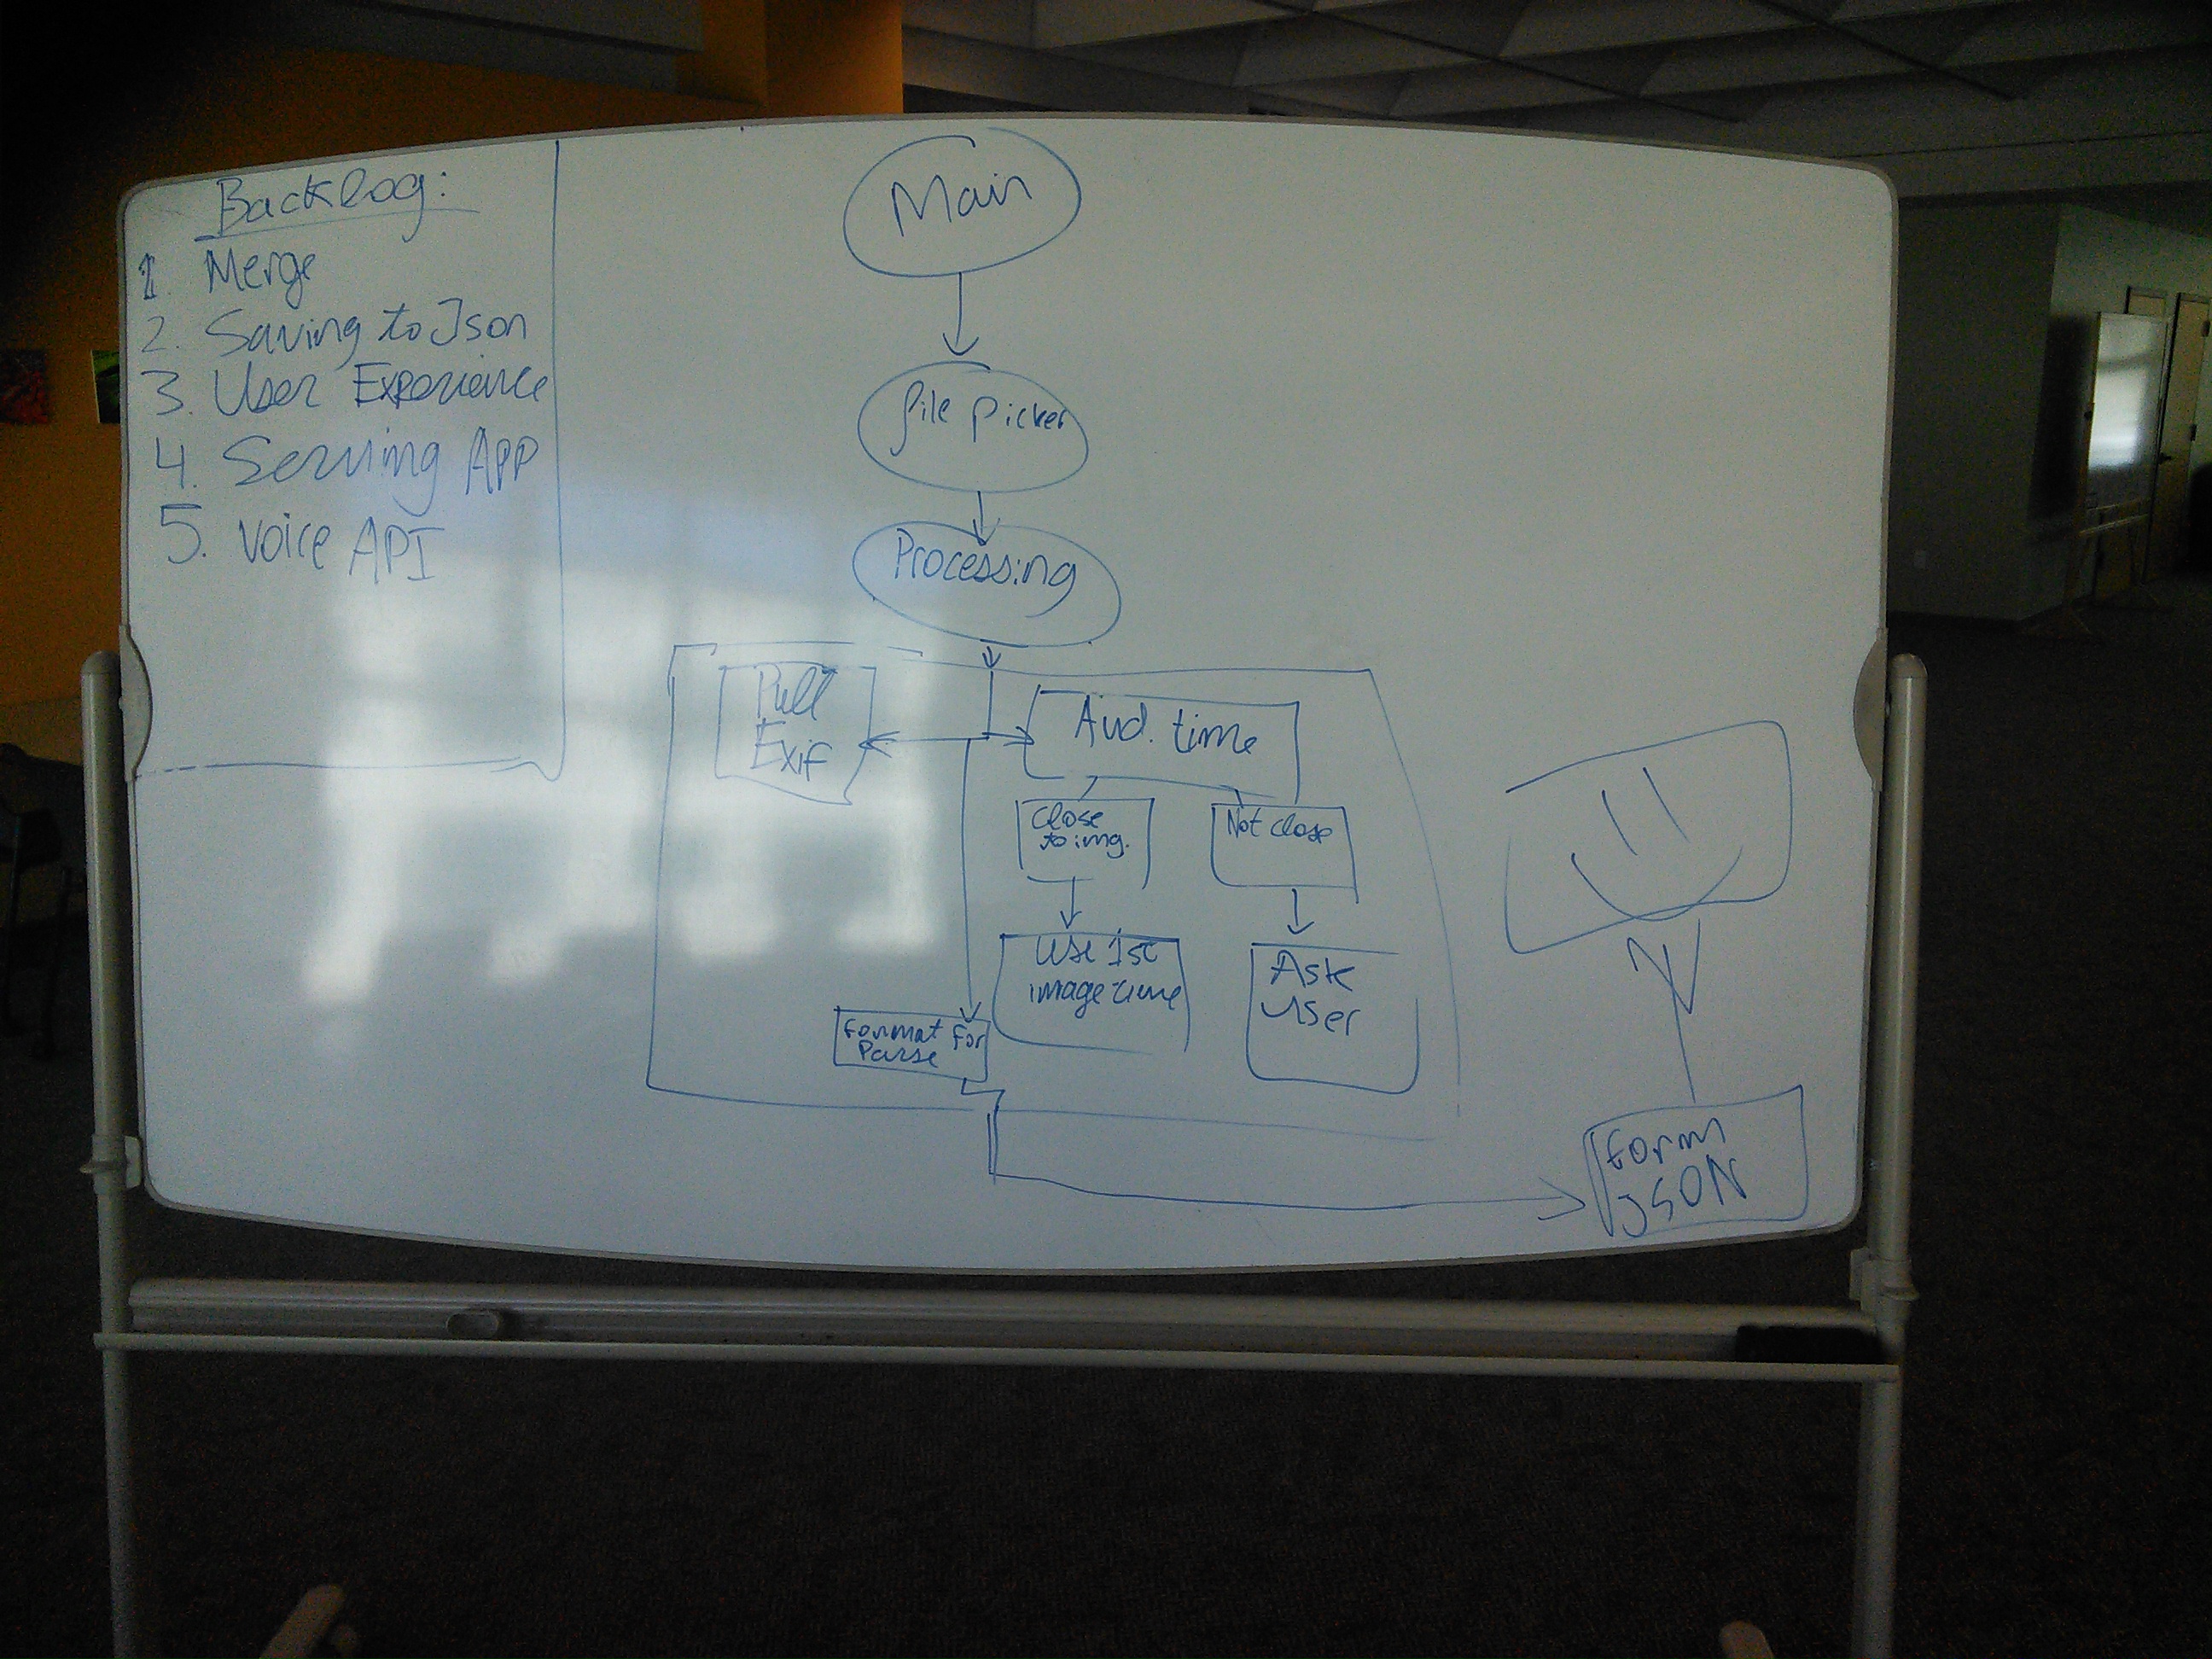 Backlog:
1. Merge
2. Saving to Json
3. User Experience
4. Serving App
5. Voice API
Main
file picker
Processing
Pull
Exif
Aud. time
Close
to img.
Not close
Use 1st
image time
Ask
User
Format For
Parse
Form
JSON